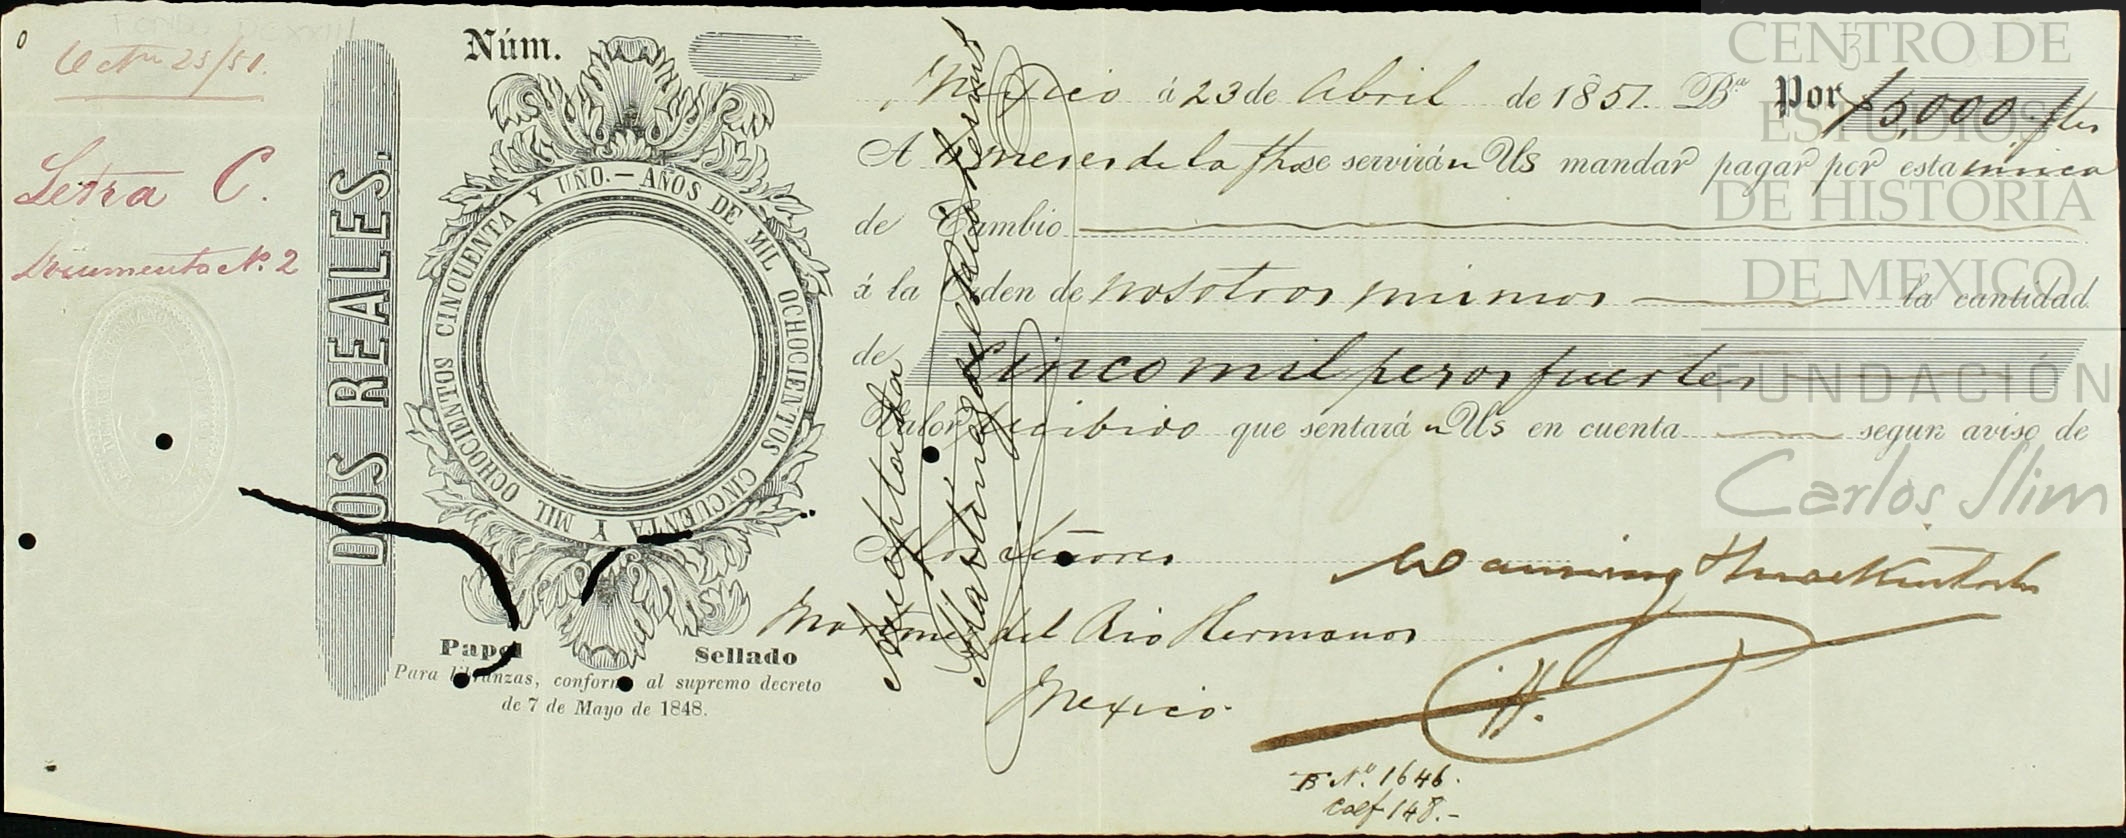 Octre 25/51.
Letra C.
Documento No. 2
DOS REALES.
Núm.
AÑOS DE MIL OCHOCIENTOS CINCUENTA Y MIL OCHOCIENTOS CINCUENTA Y UNO.
Papel Sellado
Para libranzas, conforme al supremo decreto
de 7 de Mayo de 1848.
Mexico á 23 de Abril de 1851. Ba. Por $5,000 ftes
A 6 meses de la fha se servirán Us mandar pagar por esta unica
de Cambio
á la Orden de nosotros mismos la cantidad
de Cinco mil pesos fuertes
Valor recibido que sentará n Us en cuenta segun aviso de
A los Señores
Martinez del Rio Hermanos
Mexico
Manning & Mackintosh
Aceptada
Martinez del Rio Hermos
B No. 1646.
Cof 148.-
CENTRO DE
ESTUDIOS
DE HISTORIA
DE MEXICO
FUNDACIÓN
Carlos Slim